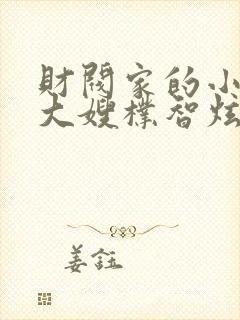 財閥家的小
大嫂樸智炫
姜鈺